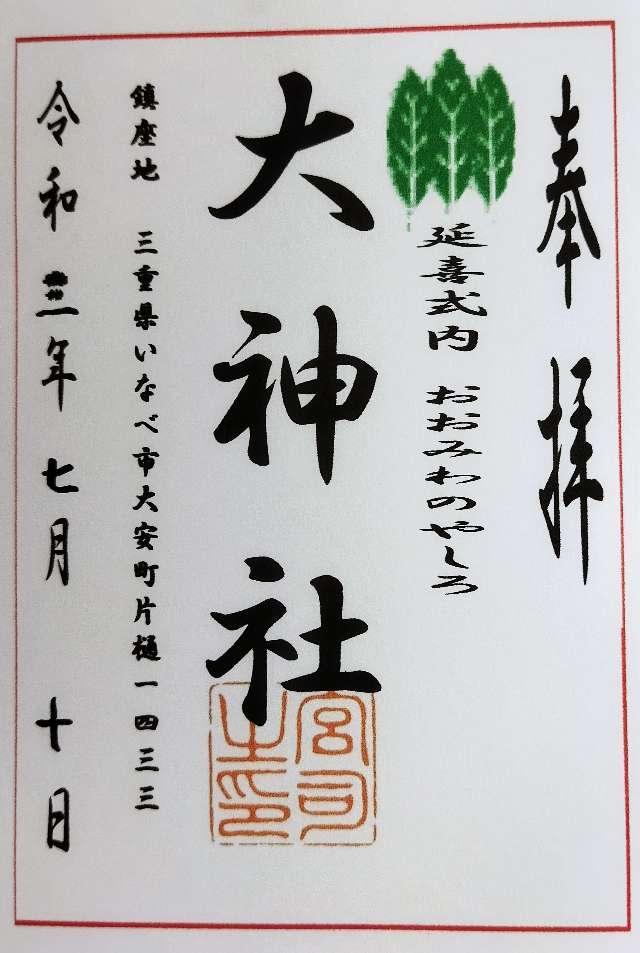 奉拝
延喜式内 おおみわのやしろ
大神社
宮司之印
鎮座地 三重県いなべ市大安町片樋一四三三
令和三年七月 十日